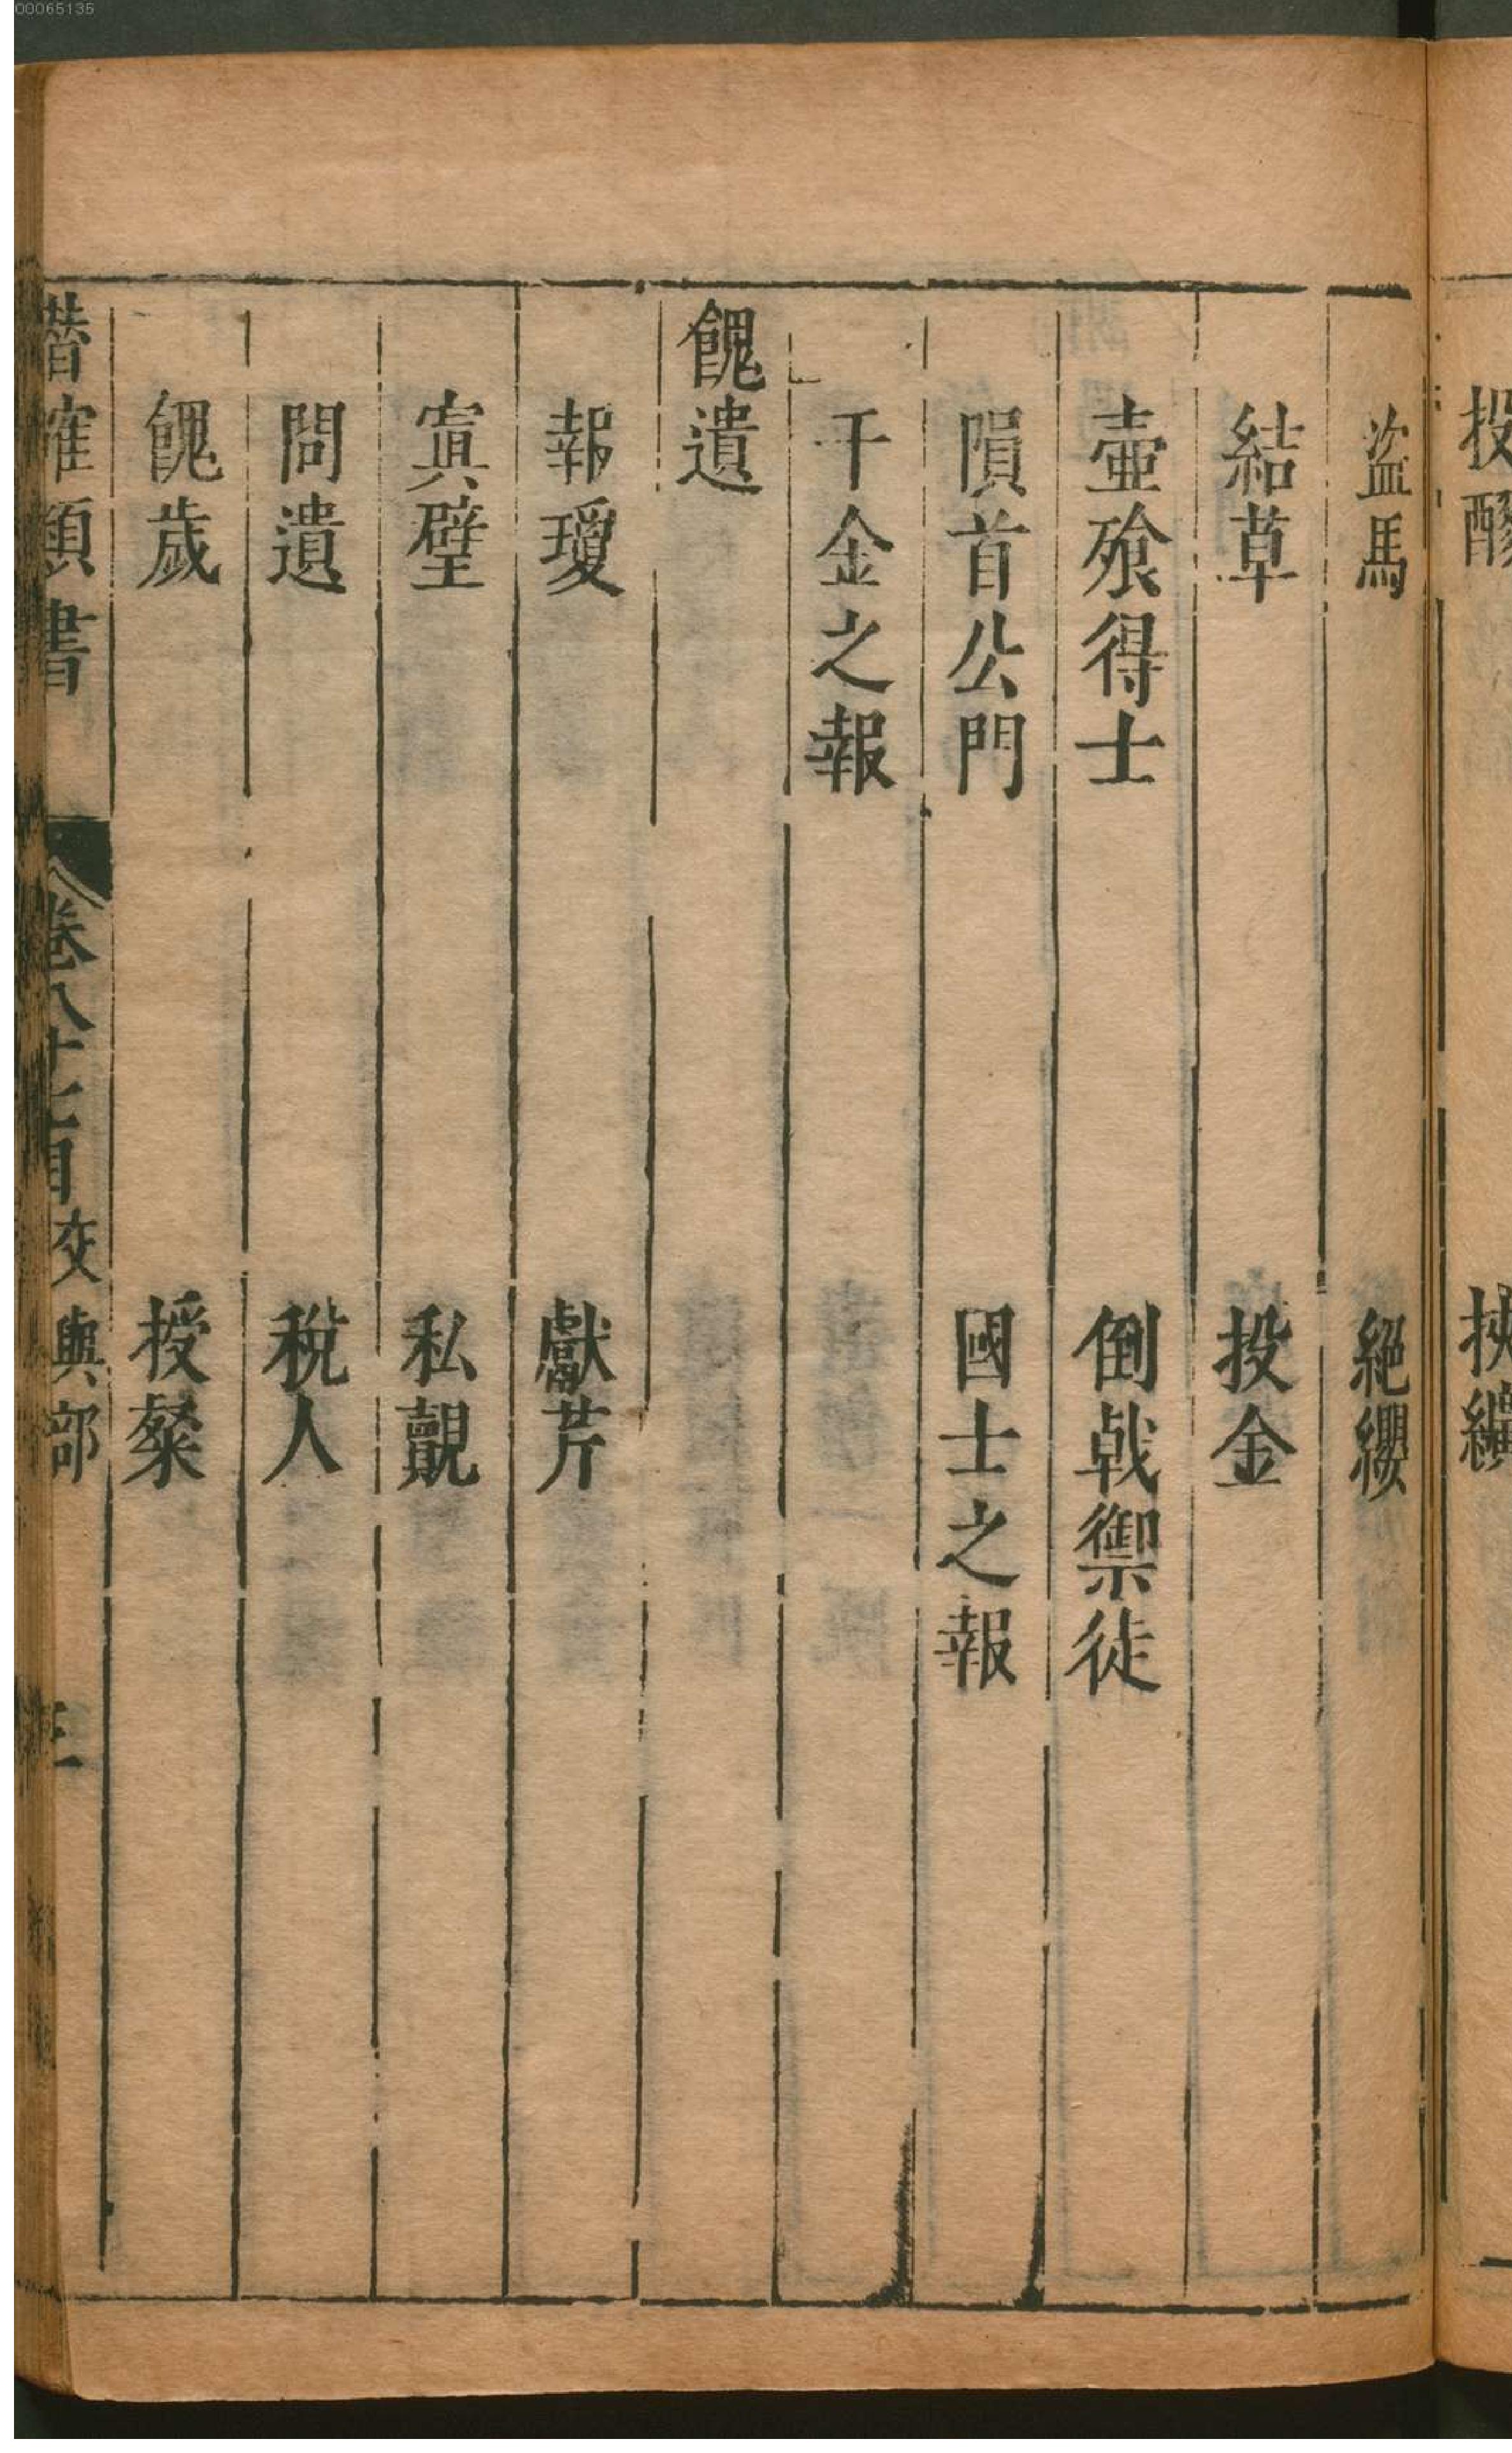 00065135
投醪　挾纊
盜馬　絕纓
結草　投金
壺飱得士　倒戟禦徒
隕首公門　國士之報
千金之報
餽遺
報瓊　獻芹
寘璧　私覿
問遺　稅人
餽歲　授粲
潛確類書　卷八十七目　交與部　三